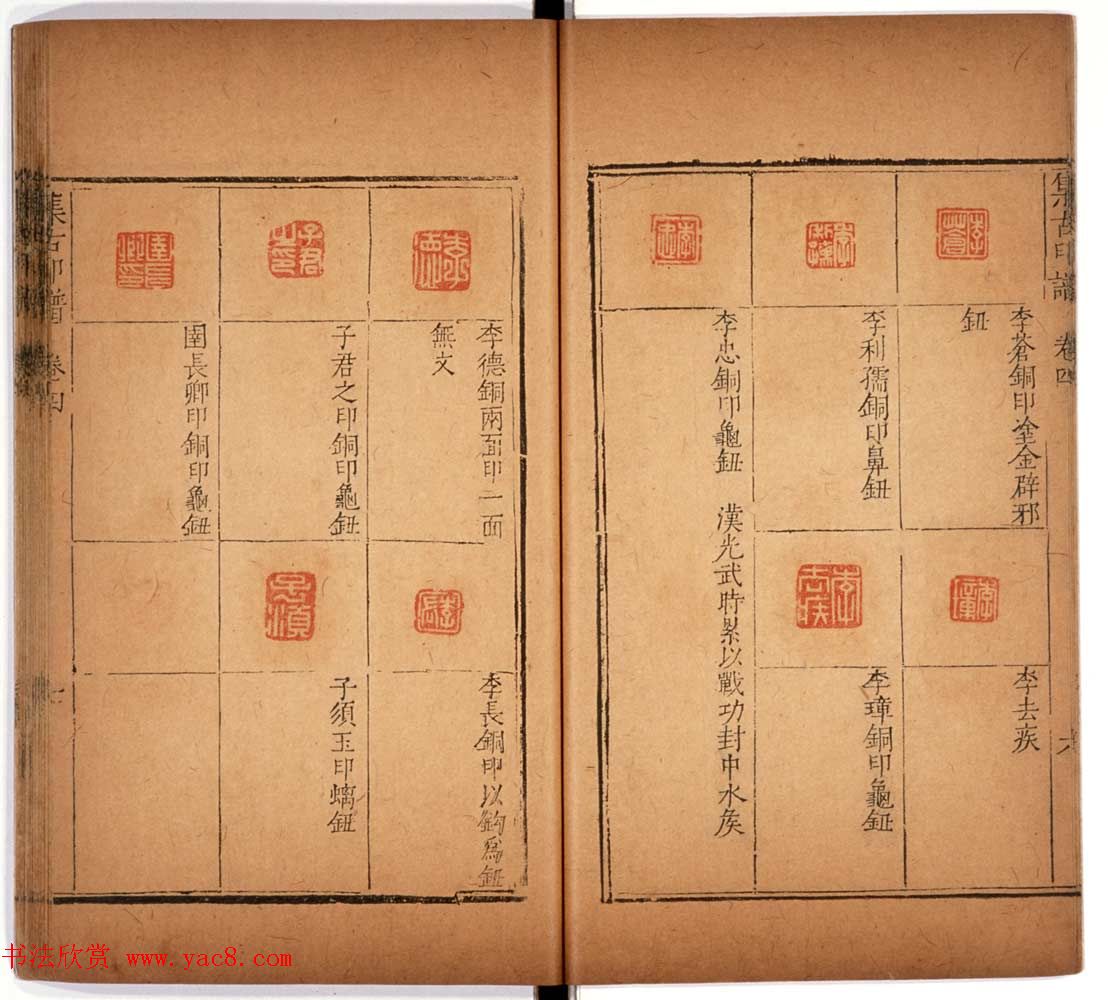 集古印譜 卷四 六
李蒼銅印塗金辟邪
鈕
李利孺銅印鼻鈕
李忠銅印龜鈕 漢光武時累以戰功封中水矦
李去疾
李璋銅印龜鈕
李德銅兩面印一面
無文
子君之印銅印龜鈕
長卿印銅印龜鈕
李長銅印以鈎爲鈕
子須玉印螭鈕
集古印譜 卷四
书法欣赏 www.yac8.com